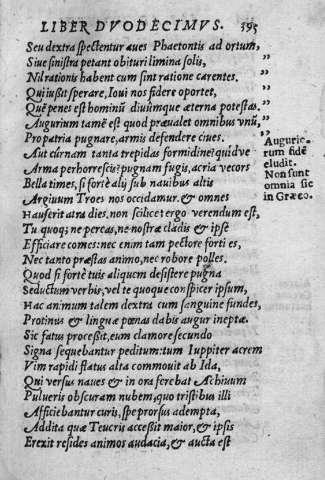 LIBER DVODECIMVS. 395
Seu dextra spectentur aues Phaetontis ad ortum,
Siue sinistra petant obituri limina solis, ”
Nil rationis habent cum sint ratione carentes. ”
Qui iußit sperare, Ioui nos fidere oportet, ”
Quē penes est hominū diuûmque æterna potestas. ”
Augurium tamē est quod præualet omnibus vnū, ”
Pro patria pugnare, armis defendere ciues. ”
Aut cur nam tanta trepidas formidine? quidve
Arma perhorrescis? pugnam fugis, acria vecors
Bella times, si fortè alij sub nauibus altis
Argiuûm Troes nos occidamur. & omnes
Hauserit atra dies. non scilicet ergo verendum est,
Tu quoq; ne percas, ne nostræ cladis & ipse
Efficiare comes: nec enim tam pectore forti es,
Nec tanto præstas animo, nec robore polles.
Quod si fortè tuis aliquem desistere pugna
Seductum verbis, vel te quoque conspicer ipsum,
Hac animum talem dextra cum sanguine fundes,
Protinus & linguæ pœnas dabis augur ineptæ.
Sic fatus proceßit, eum clamore secundo
Signa sequebantur peditum: tum Iuppiter acrem
Vim rapidi flatus alta commouit ab Ida,
Qui versus naues & in ora ferebat Achiuum
Pulueris obscuram nubem, quo tristibus illi
Afficiebantur curis, spe prorsus adempta,
Addita quæ Teucris acceßit maior, & ipsis
Erexit resides animos audacia, & aucta est
Augurio-
rum fidē
eludit.
Non sunt
omnia sic
in Græco.